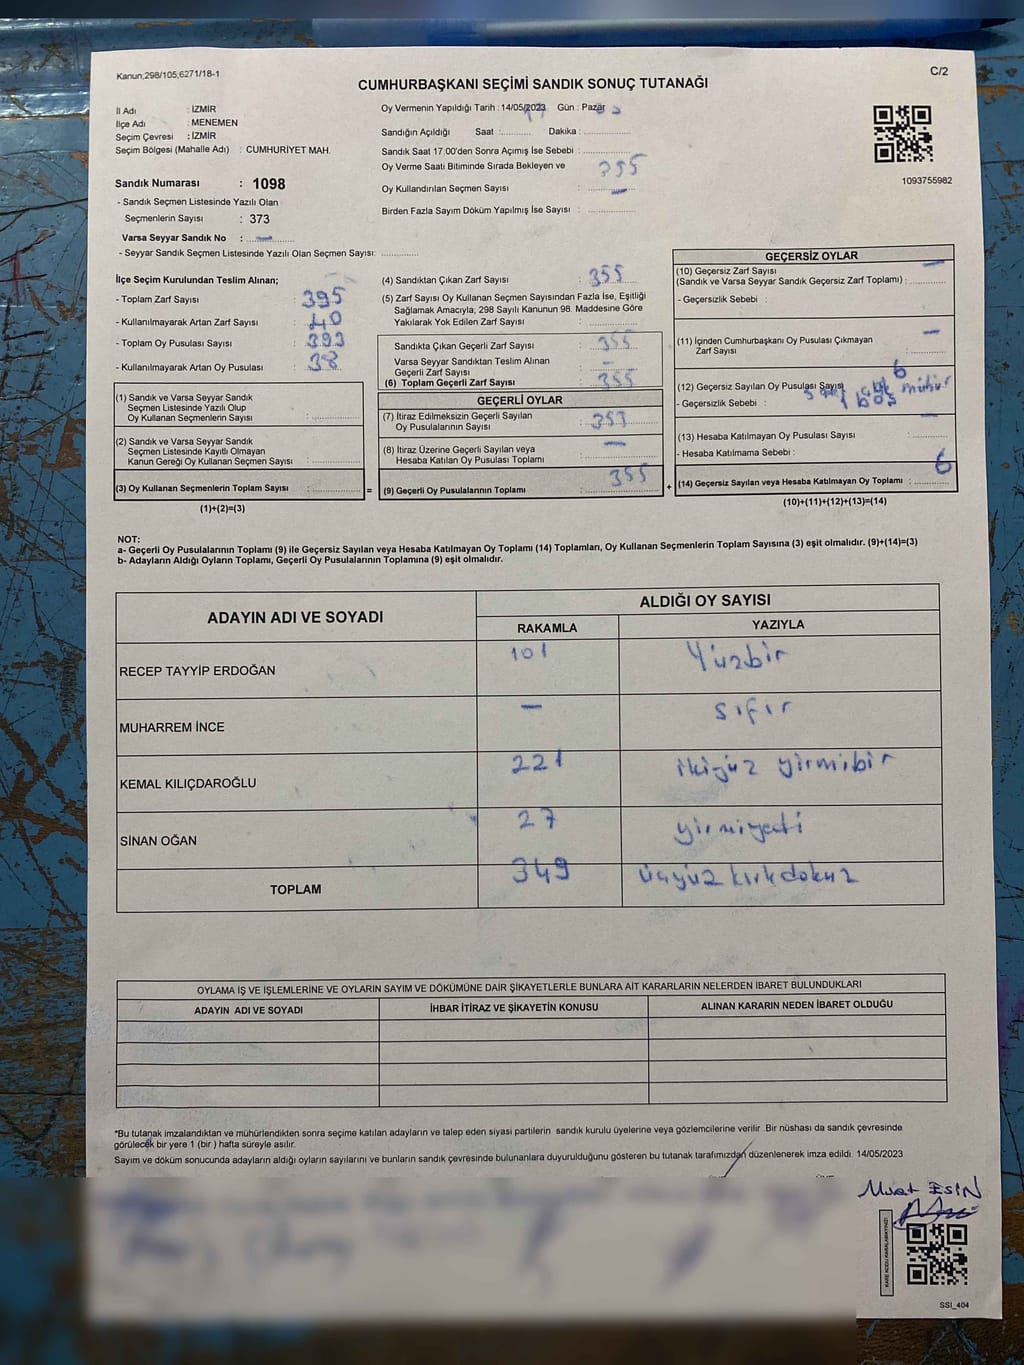 Kanun;298/105;6271/18-1
C/2
CUMHURBAŞKANI SEÇİMİ SANDIK SONUÇ TUTANAĞI
İl Adı : İZMİR
İlçe Adı : MENEMEN
Seçim Çevresi : İZMİR
Seçim Bölgesi (Mahalle Adı) : CUMHURİYET MAH.
Sandık Numarası : 1098
- Sandık Seçmen Listesinde Yazılı Olan
Seçmenlerin Sayısı : 373
Varsa Seyyar Sandık No : —
- Seyyar Sandık Seçmen Listesinde Yazılı Olan Seçmen Sayısı:
Oy Vermenin Yapıldığı Tarih : 14/05/2023 Gün : Pazar
Sandığın Açıldığı Saat : Dakika :
Sandık Saat 17:00'den Sonra Açımış İse Sebebi :
Oy Verme Saati Bitiminde Sırada Bekleyen ve
Oy Kullandırılan Seçmen Sayısı : —
355
Birden Fazla Sayım Döküm Yapılmış İse Sayısı :
1093755982
İlçe Seçim Kurulundan Teslim Alınan;
- Toplam Zarf Sayısı : 395
- Kullanılmayarak Artan Zarf Sayısı : 40
- Toplam Oy Pusulası Sayısı : 393
- Kullanılmayarak Artan Oy Pusulası : 38
(1) Sandık ve Varsa Seyyar Sandık
Seçmen Listesinde Yazılı Olup
Oy Kullanan Seçmenlerin Sayısı :
(2) Sandık ve Varsa Seyyar Sandık
Seçmen Listesinde Kayıtlı Olmayan
Kanun Gereği Oy Kullanan Seçmen Sayısı :
(3) Oy Kullanan Seçmenlerin Toplam Sayısı :
(1)+(2)=(3)
=
(4) Sandıktan Çıkan Zarf Sayısı : 355
(5) Zarf Sayısı Oy Kullanan Seçmen Sayısından Fazla İse, Eşitliği
Sağlamak Amacıyla, 298 Sayılı Kanunun 98. Maddesine Göre
Yakılarak Yok Edilen Zarf Sayısı :
Sandıkta Çıkan Geçerli Zarf Sayısı : 355
Varsa Seyyar Sandıktan Teslim Alınan
Geçerli Zarf Sayısı : —
(6) Toplam Geçerli Zarf Sayısı : 355
GEÇERLİ OYLAR
(7) İtiraz Edilmeksizin Geçerli Sayılan
Oy Pusulalarının Sayısı : 353
(8) İtiraz Üzerine Geçerli Sayılan veya
Hesaba Katılan Oy Pusulası Toplamı : —
(9) Geçerli Oy Pusulalarının Toplamı : 355
+
GEÇERSİZ OYLAR
(10) Geçersiz Zarf Sayısı —
(Sandık ve Varsa Seyyar Sandık Geçersiz Zarf Toplamı) :
- Geçersizlik Sebebi :
(11) İçinden Cumhurbaşkanı Oy Pusulası Çıkmayan —
Zarf Sayısı
(12) Geçersiz Sayılan Oy Pusulası Sayısı 6
- Geçersizlik Sebebi : 5 mühür
1 boş
(13) Hesaba Katılmayan Oy Pusulası Sayısı : —
- Hesaba Katılmama Sebebi :
(14) Geçersiz Sayılan veya Hesaba Katılmayan Oy Toplamı : 6
(10)+(11)+(12)+(13)=(14)
NOT:
a- Geçerli Oy Pusulalarının Toplamı (9) ile Geçersiz Sayılan veya Hesaba Katılmayan Oy Toplamı (14) Toplamları, Oy Kullanan Seçmenlerin Toplam Sayısına (3) eşit olmalıdır. (9)+(14)=(3)
b- Adayların Aldığı Oyların Toplamı, Geçerli Oy Pusulalarının Toplamına (9) eşit olmalıdır.
ADAYIN ADI VE SOYADI
ALDIĞI OY SAYISI
RAKAMLA YAZIYLA
RECEP TAYYİP ERDOĞAN 101 Yüzbir
MUHARREM İNCE — sıfır
KEMAL KILIÇDAROĞLU 221 ikiyüz yirmibir
SİNAN OĞAN 27 yirmiyedi
TOPLAM 349 üçyüz kırkdokuz
OYLAMA İŞ VE İŞLEMLERİNE VE OYLARIN SAYIM VE DÖKÜMÜNE DAİR ŞİKAYETLERLE BUNLARA AİT KARARLARIN NELERDEN İBARET BULUNDUKLARI
ADAYIN ADI VE SOYADI İHBAR İTİRAZ VE ŞİKAYETİN KONUSU ALINAN KARARIN NEDEN İBARET OLDUĞU
*Bu tutanak imzalandıktan ve mühürlendikten sonra seçime katılan adayların ve talep eden siyasi partilerin sandık kurulu üyelerine veya gözlemcilerine verilir .Bir nüshası da sandık çevresinde
görülecek bir yere 1 (bir ) hafta süreyle asılır.
Sayım ve döküm sonucunda adayların aldığı oyların sayılarını ve bunların sandık çevresinde bulunanlara duyurulduğunu gösteren bu tutanak tarafımızdan düzenlenerek imza edildi. 14/05/2023
Murat ESİN
SSI_404